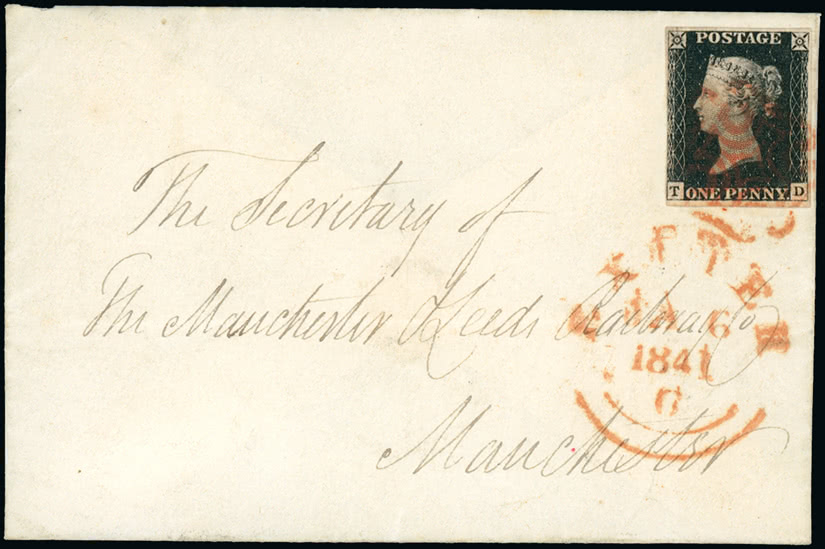 POSTAGE
T ONE PENNY. D
The Secretary of
The Manchester Leeds Railway Co
JA 6
1841
G
Manchester